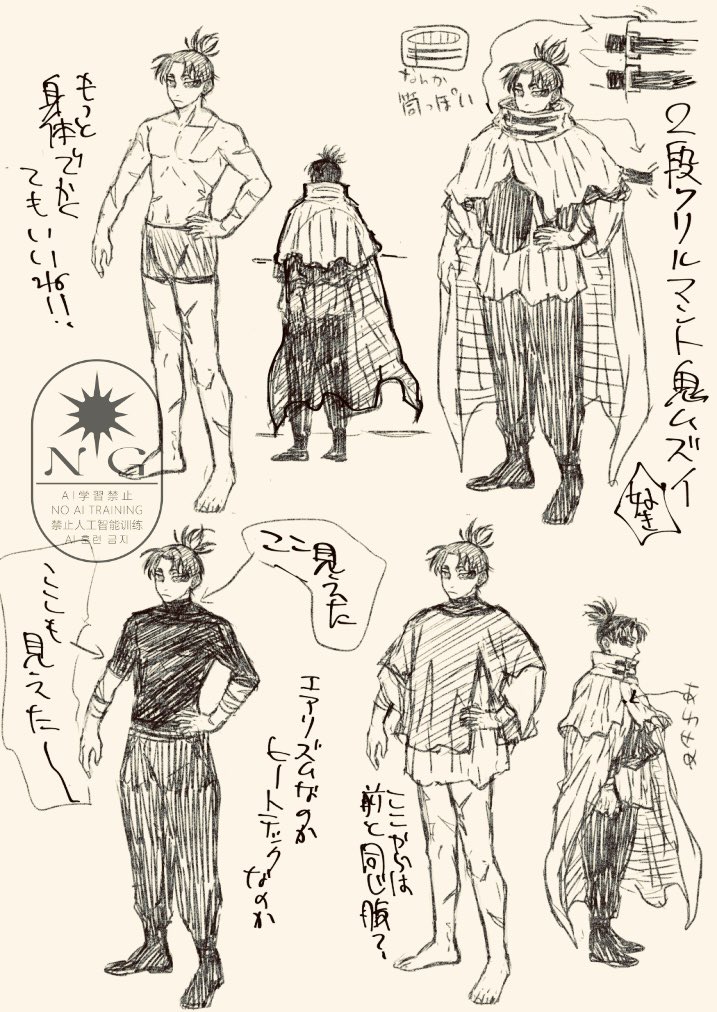 もっと
身体でかく
てもいいね!!
なんか
筒っぽい
2段フリルマント鬼ムズイ
なき
NG
AI学習禁止
NO AI TRAINING
禁止人工智能训练
AI 훈련 금지
ここ見えた
ここも
見えたー
エアリズムなのか
ヒートテックなのか
ここからは
前と同じ服?